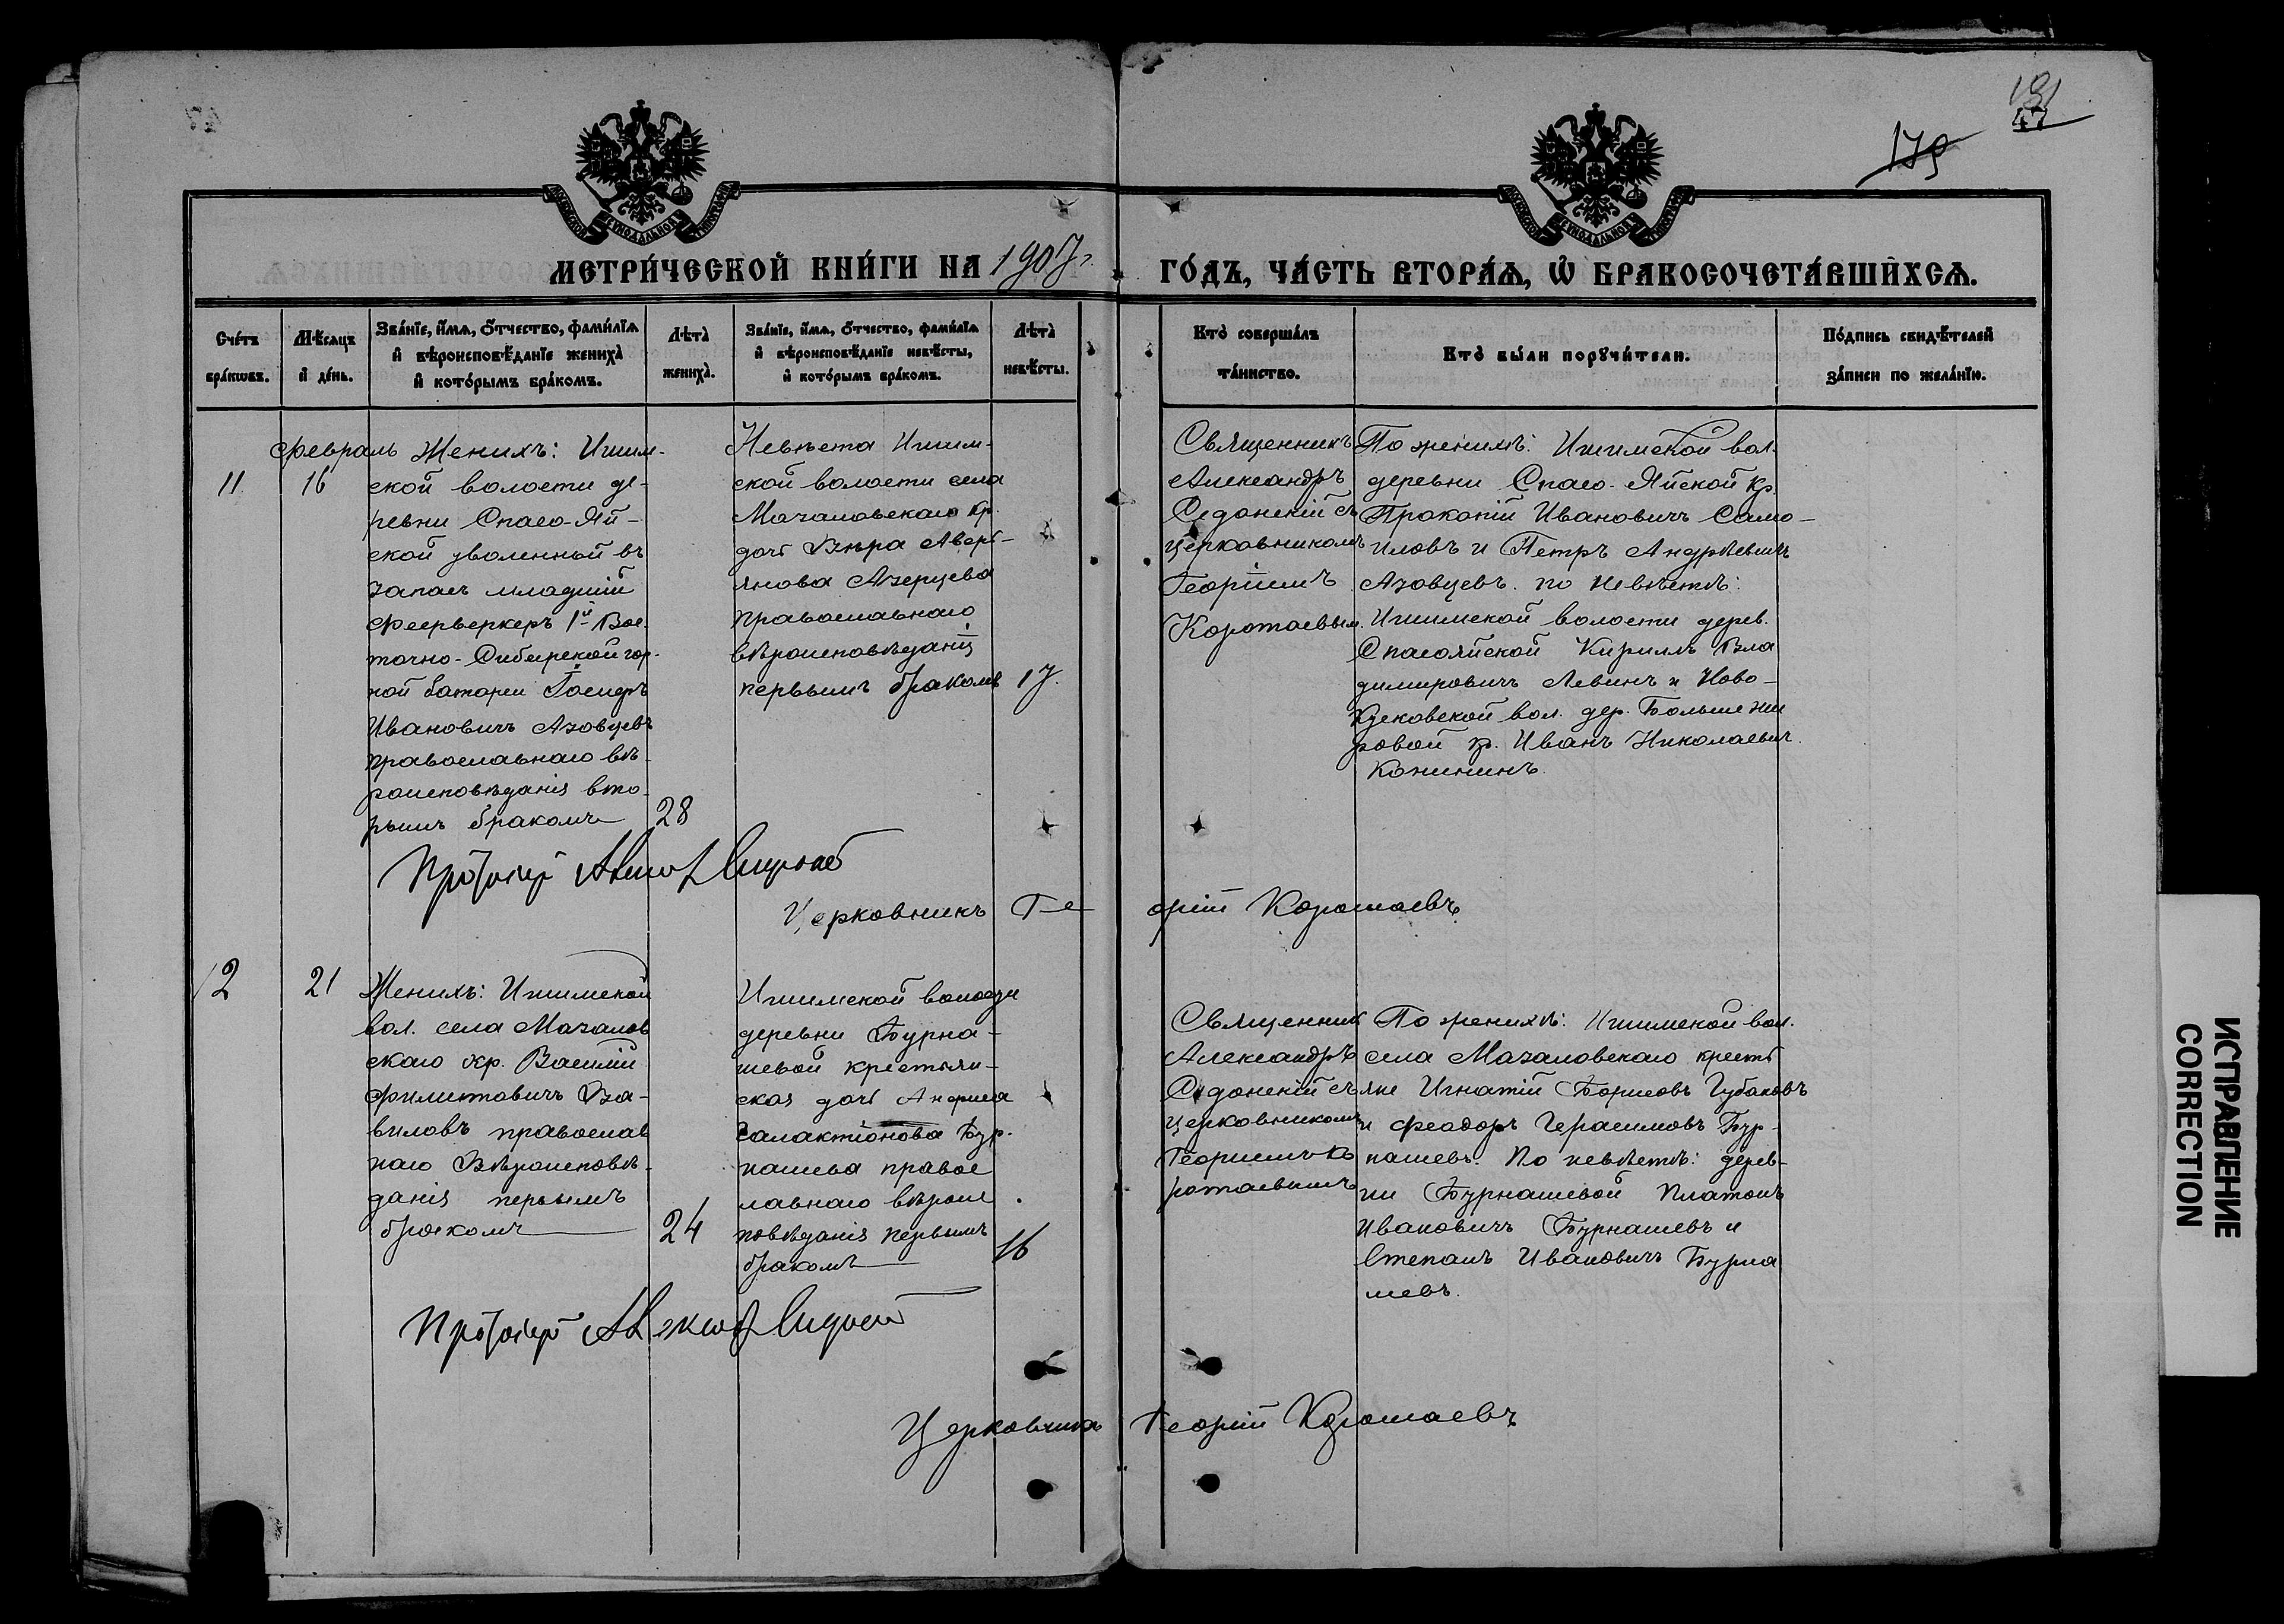 МЕТРИ́ЧЕСКОЙ КНИ́ГИ НА 1907 г.
ГО́ДЪ, ЧА́СТЬ ВТОРА́Я, Ѡ БРАКОСОЧЕТА́ВШИХСЯ.
Сче́тъ бра́кѡвъ.
Мѣ́сяцъ и де́нь.
Зва́нїе, и́мя, о́тчество, фами́лїя и вѣроисповѣ́данїе жениха̀ и кото́рымъ бра́комъ.
Лѣ́та жениха̀.
Зва́нїе, и́мя, о́тчество, фами́лїя и вѣроисповѣ́данїе невѣ́сты, и кото́рымъ бра́комъ.
Лѣ́та невѣ́сты.
Кто̀ соверша́лъ та́инство.
Кто̀ бы́ли порꙋчи́тели.
По́дпись свидѣ́телей за́писи по жела́нїю.
11
Февраль
16
Женихъ: Ишим-
ской волости де-
ревни Спасо-Яй-
ской уволенный въ
запасъ младшій
фейерверкеръ 1й Вос
точно-Сибирской гор-
ной батареи
Ивановичъ Азовцевъ
православнаго вѣ-
роисповѣданія вто-
рымъ бракомъ
28
Невѣста Ишим-
ской волости села
Мачаловскаго кр.
дочь Вѣра Аверь-
янова Азерцева
православнаго
вѣроисповѣданія
первымъ бракомъ
17
Священникъ
Александръ
Сидонскій съ
церковникомъ
Георгіемъ
Коротаевым.
По женихѣ: Ишимской вол.
деревни Спасо-Яйской кр.
Прокопій Ивановичъ Само-
иловъ и Петръ Андрѣевичъ
Азовцевъ. по невѣстѣ:
Ишимской волости дерев.
Спасояйской Кириллъ Вла
димировичъ Левинъ и Ново-
Кусковской вол. дер. Больше жи
ровой кр. Иванъ Николаевич.
Конининъ.
Церковникъ Ге оргій Коротаевъ
12
21
Женихъ: Ишимской
вол. села Мачалов
скаго кр. Василій
Филиповичъ Ва-
виловъ православ
наго Вѣроисповѣ-
данія первымъ
бракомъ
24
Ишимской волости
деревни Бурна-
шевой крестьян-
ская дочь Анфиса
Галактіонова Бур-
нашева правос
лавнаго вѣроис
повѣданія первымъ
бракомъ
16
Священник
Александръ
Сидонскій съ
церковникомъ
Георгіемъ Ко
ротаевымъ
По женихѣ: Ишимской вол.
села Мачаловскаго кресть
яне Игнатій Борисовъ Губановъ
и Феодоръ Герасимовъ Бур-
нашевъ. По невѣстѣ: дерев-
ни Бурнашевой Платонъ
Ивановичъ Бурнашевъ и
Степанъ Ивановичъ Бурна
шевъ.
Церковникъ Георгій Коротаевъ
ИСПРАВЛЕНИЕ
CORRECTION